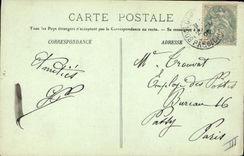 CARTE POSTALE
Tous les Pays étrangers n'acceptent pas la Correspondance au recto. - Se renseigner à
CORRESPONDANCE
ADRESSE
Amitiés
Mr
Employé des Postes
Bureau 16
Passy
Paris